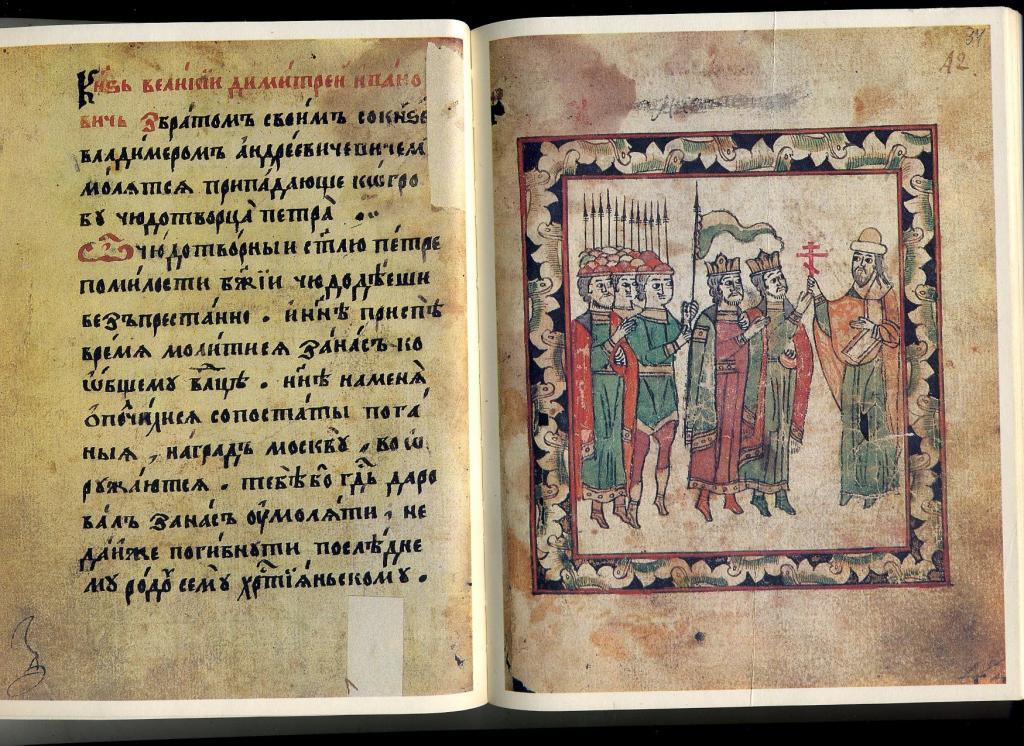 Кнѧзь великїи димитреи ивано
вичь Збратомъ своимъ сокнѧзе
владимеромъ андреевичевичем
молятся припа́дающе кѡгро
бу чюдотворца̀ петра̀
Ѽ чю́дотворныи ст҃лю петре
помилости бж҃їи чюдодѣеши
безъпреста́нно . ин҃нѣ приспѣ
время молитися за́на́съ ко
ѡ҆бщему влⷣцѣ . нн҃ѣ наменѧ
ѻ҆полчи́шася сопоста́ты пога́
ныѧ , на́градъ москву̀ , во ѡ҆
ружа́ются . тебѣбо гдⷭ҇ь даро
ва́лъ за́на́съ оу҆моля́ти , не
да́иже поги́бнути послѣ́дне
му родꙋ̀ сему̀ хрⷭ҇тїя́ньскому .
34
42